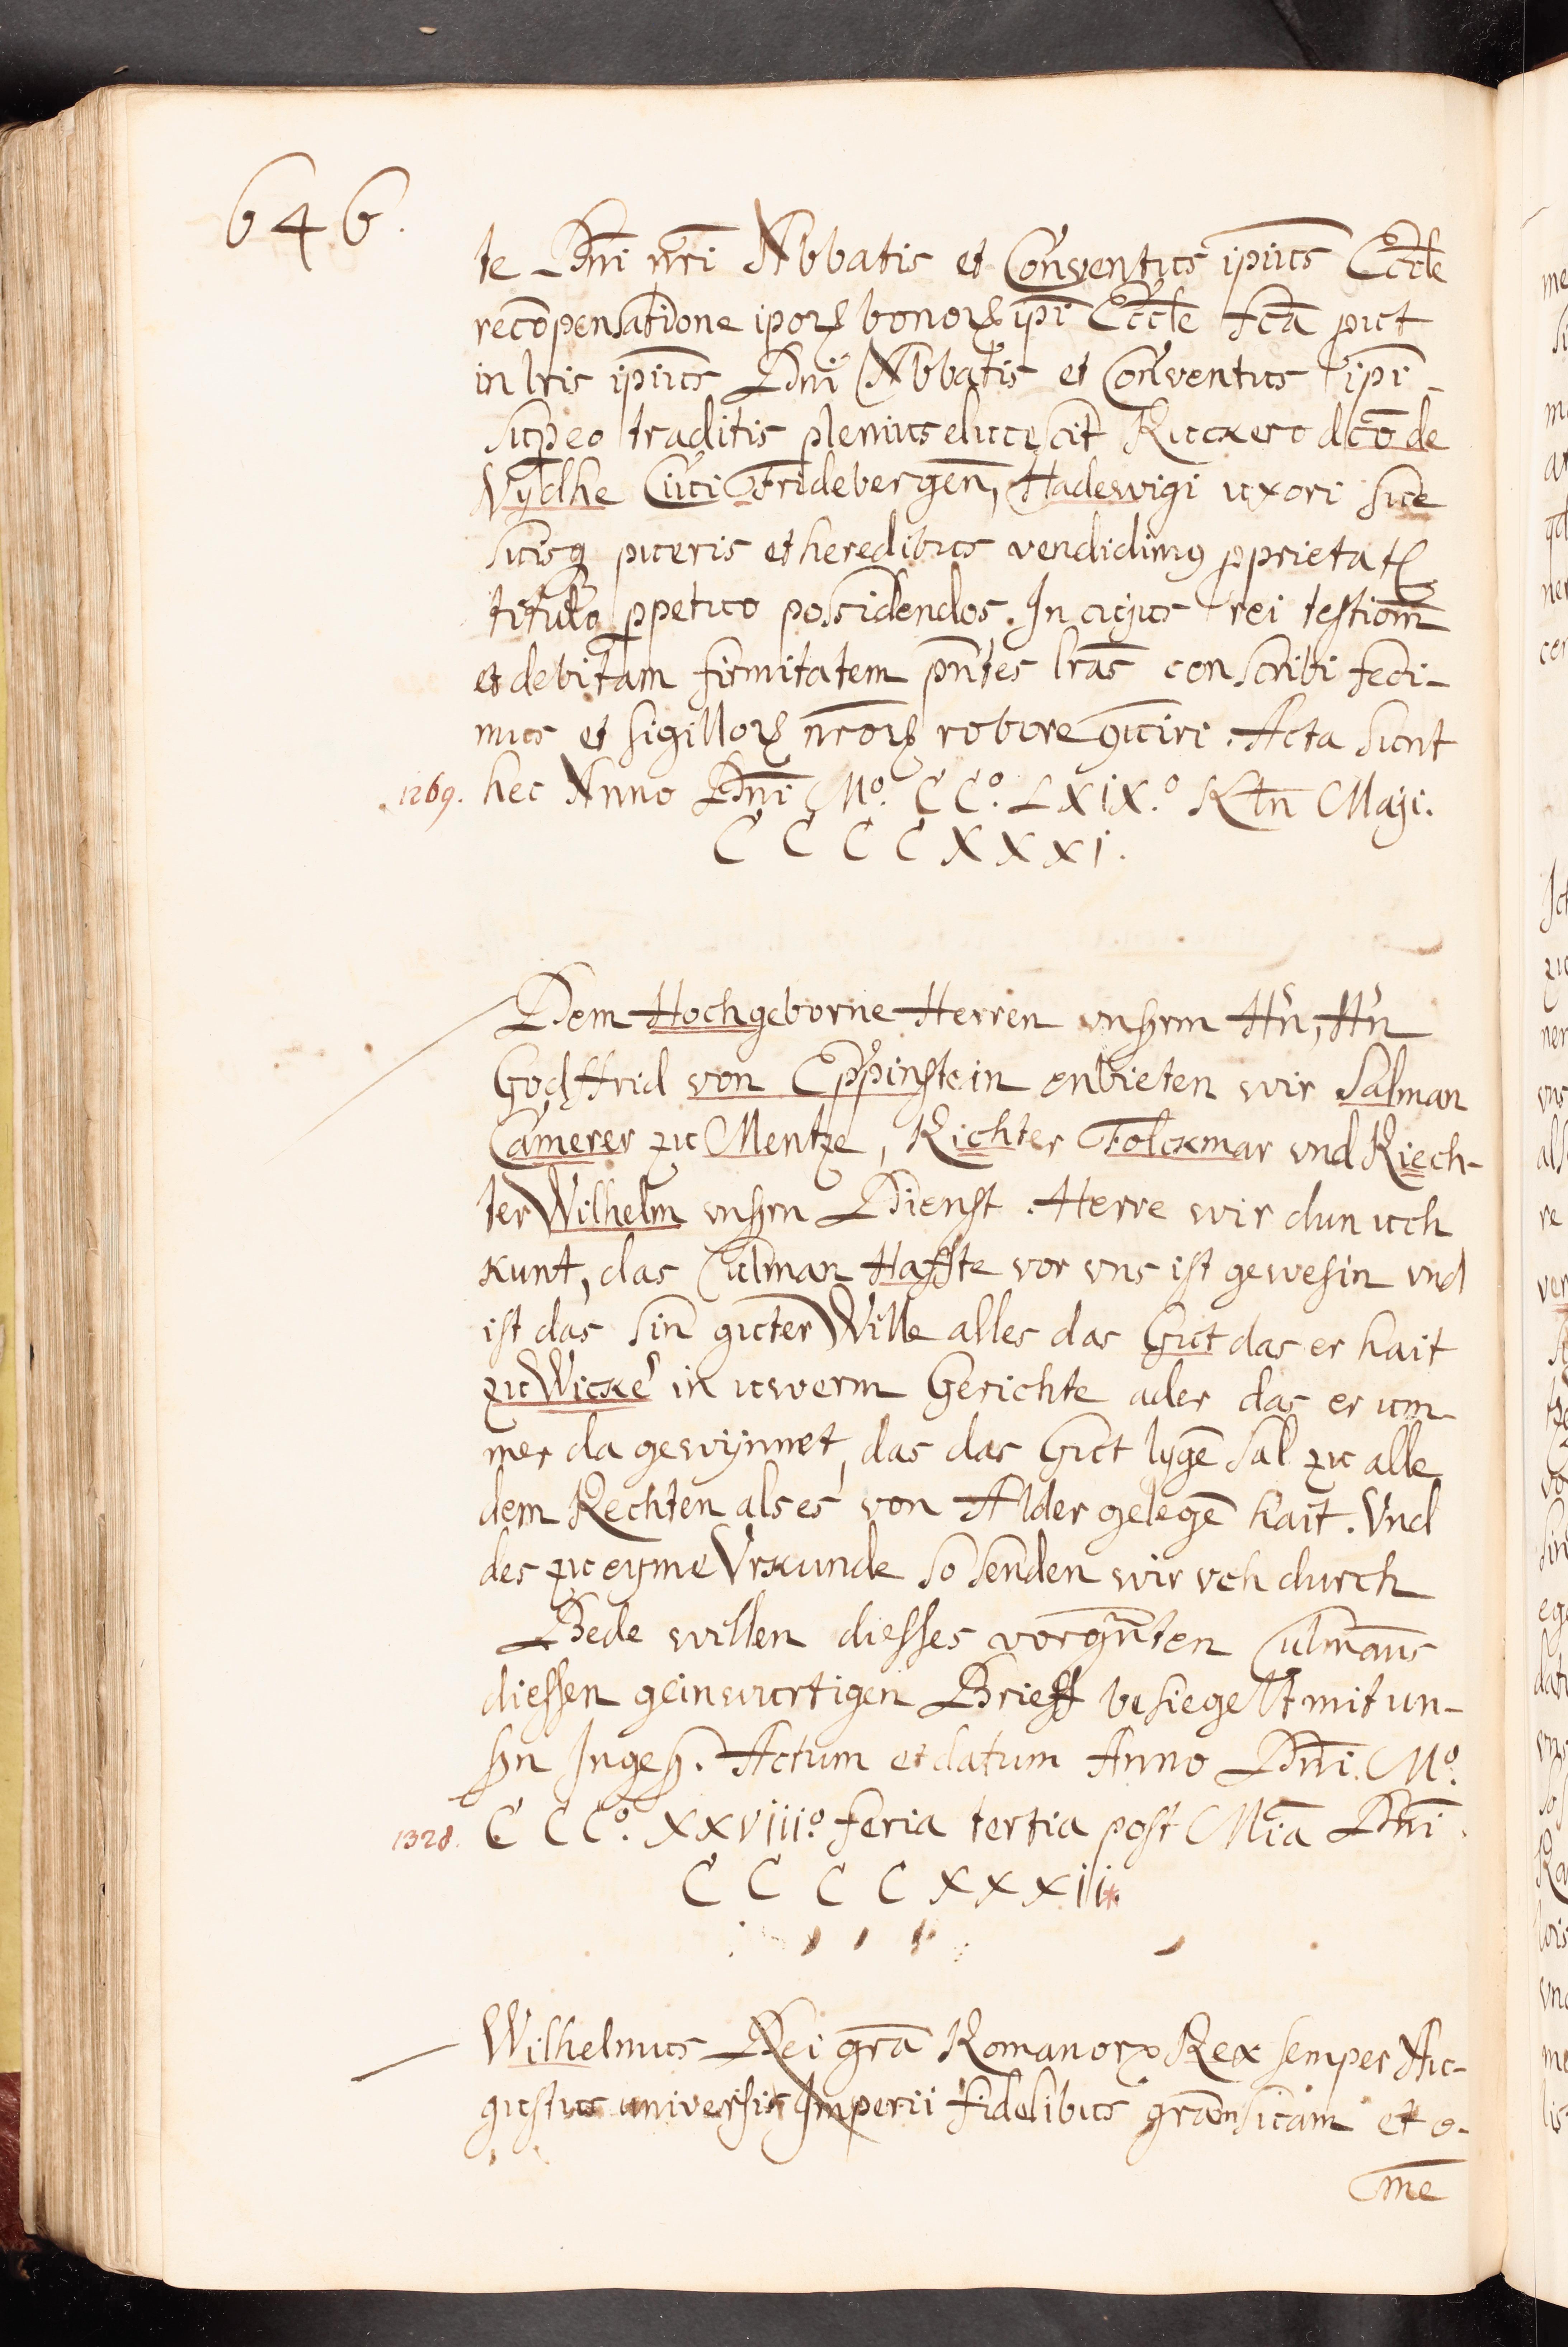 646.
te Dn̄i nr̄i Abbatis et Conventus ipīus Eccl̄e
recōpensatione ipoꝝ bonoꝝ ipī Eccl̄e fc̄a put
in lr̄is ipīus Dn̄i Abbatis et Conventus ipī
sup eo traditis plenius elucescit Ruckero dc̄o de
Vydhe Ciui Fridebergen̄, Hadewigi uxori sue
suisq pueris et heredibus vendidimꝰ pprietatꝭ
titulo ppetuo possidendos. In cujus rei testiom̄
et debitam firmitatem pn̄tes lrās conscribi feci-
mus et sigilloꝝ nr̄oꝝ robore ꝯuiri. Acta sunt
1269. hec Anno Dn̄i Mº. CCº. LXIX.º Kln̄ Maji.
CCCCXXXI.
Dem Hochgeborne Herren vnßrm Hn̄, Hn̄
Godffrid von Eppinstein enbieten wir Salman
Camerer zu Mentze, Richter Folckmar vnd Riech-
ter Wilhelm vnßrn Dienst. Herre wir dun uch
kunt, das Culman Haffte vor vns ist gewesin vnd
ist das sin guter Wille alles das Gut das er hait
zu Wicke in uwerm Gerichte ader das er um-
mer da gewynnet, das das Gut lygē sal zu alle
dem Rechten als es von Alder gelegē hait. Vnd
des zu eyme Vrkunde so senden wir vch durch
Bede willen diesses vorgn̄ten Culmans
diessen geinwurtigen Brieff besiegelt mit un-
ßn Ingeß. Actum et datum Anno Dn̄i. Mº.
1328. CCCº. XXVIIIº. feria tertia post Miā Dn̄i.
CCCCXXXII.
Wilhelmus Dei grā Romanoꝝ Rex semper Au-
gustus universis Imperii fidelibus grām suam et o-
m̄e